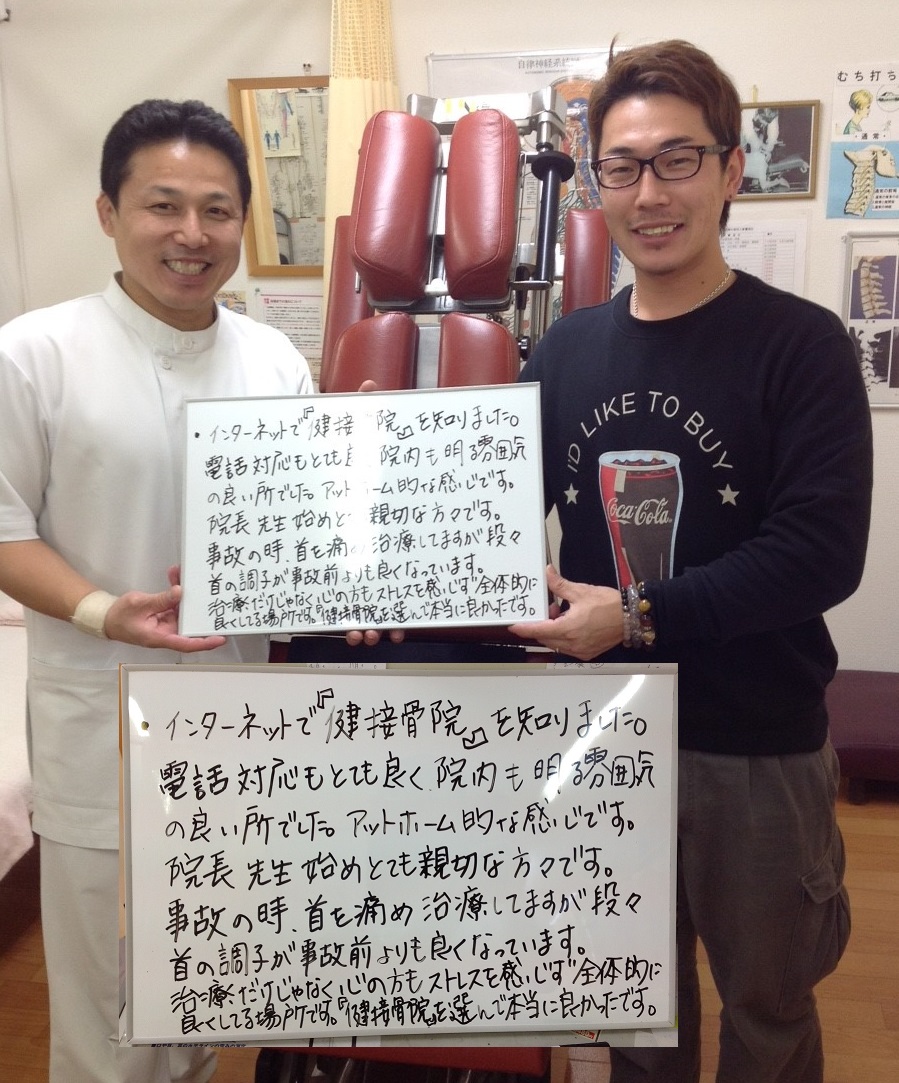 自律神経系
むち打ち
通常
I'D LIKE TO BUY
Coca-Cola
・インターネットで『健接 院』を知りました。
電話対応もとても良 院内も明る雰囲気
の良い所でした。アットホーム的な感じです。
院長先生始めとて 親切な方々です。
事故の時、首を痛め治療してますが段々
首の調子が事故前よりも良くなっています。
治療だけじゃなく心の方もストレスを感じず全体的に
良くしてる場所です。『健接骨院』を選んで本当に良かったです。
・インターネットで『健接骨院』を知りました。
電話対応もとても良く、院内も明る雰囲気
の良い所でした。アットホーム的な感じです。
院長先生始めとても親切な方々です。
事故の時、首を痛め治療してますが段々
首の調子が事故前よりも良くなっています。
治療だけじゃなく心の方もストレスを感じず全体的に
良くしてる場所です。『健接骨院』を選んで本当に良かったです。